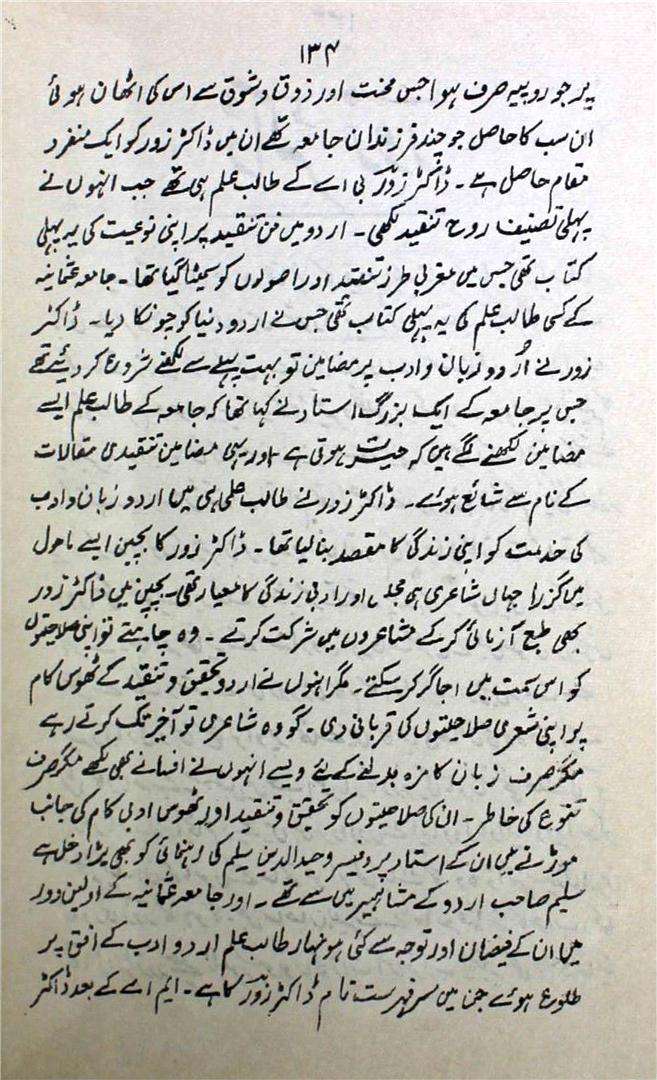 ۱۳۴
پر جو روپیہ صرف ہوا جس محنت اور ذوق و شوق سے اس کی اٹھان ہوئی
ان سب کا حاصل جو چند فرزندان جامعہ تھے ان میں ڈاکٹر زور کو ایک منفرد
مقام حاصل ہے۔ ڈاکٹر زورؔ بی اے کے طالب علم ہی تھے جب انہوں نے
پہلی تصنیف روح تنقید لکھی۔ اردو میں فن تنقید پر اپنی نوعیت کی یہ پہلی
کتاب تھی جس میں مغربی طرز تنقید اور اصولوں کو سمیٹا گیا تھا۔ جامعہ عثمانیہ
کے کسی طالب علم کی یہ پہلی کتاب تھی جس نے اردو دنیا کو چونکا دیا۔ ڈاکٹر
زور نے اُردو زبان و ادب پر مضامین تو بہت پہلے سے لکھنے شروع کر دیئے تھے
جس پر جامعہ کے ایک بزرگ استاد نے کہا تھا کہ جامعہ کے طالب علم ایسے
مضامین لکھنے لگے ہیں کہ حیرت ہوتی ہے اور یہی مضامین تنقیدی مقالات
کے نام سے شائع ہوئے۔ ڈاکٹر زور نے طالب علمی ہی میں اردو زبان و ادب
کی خدمت کو اپنی زندگی کا مقصد بنا لیا تھا۔ ڈاکٹر زور کا بچپن ایسے ماحول
میں گزرا جہاں شاعری ہی مجلسی اور ادبی زندگی کا معیار تھی۔ بچپن میں ڈاکٹر زور
بھی طبع آزمائی کر کے مشاعروں میں شرکت کرتے۔ وہ چاہتے تو اپنی صلاحیتوں
کو اس سمت میں اجاگر کر سکتے۔ مگر انہوں نے اردو تحقیق و تنقید کے ٹھوس کام
پر اپنی شعری صلاحیتوں کی قربانی دی۔ گو وہ شاعری تو آخر تک کرتے رہے
مگر صرف زبان کا مزہ بدلنے کے لئے ویسے انہوں نے افسانے بھی لکھے مگر صرف
تنوع کی خاطر۔ ان کی صلاحیتوں کو تحقیق و تنقید اور ٹھوس ادبی کام کی جانب
موڑنے میں ان کے استاد پروفیسر وحید الدین سلیم کی رہنمائی کو بھی بڑا دخل ہے
سلیم صاحب اردو کے مشاہیر میں سے تھے۔ اور جامعہ عثمانیہ کے اولین دور
میں ان کے فیضان اور توجہ سے کئی ہونہار طالب علم اردو ادب کے افق پر
طلوع ہوئے جن میں سر فہرست نام ڈاکٹر زورؔ کا ہے۔ ایم اے کے بعد ڈاکٹر